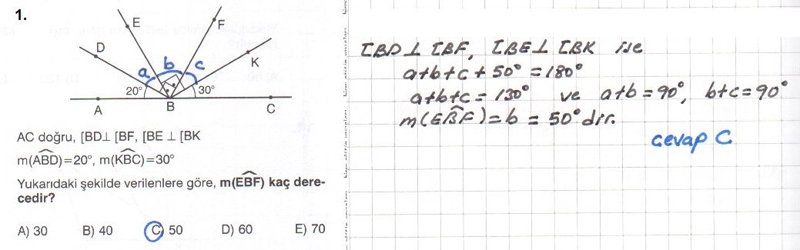 1.
E
F
D
K
a
b
c
20°
30°
A
B
C
AC doğru, [BD⊥ [BF, [BE ⊥ [BK
m(ABD)=20°, m(KBC)=30°
Yukarıdaki şekilde verilenlere göre, m(EBF) kaç dere-
cedir?
A) 30 B) 40 C) 50 D) 60 E) 70
[BD⊥ [BF, [BE⊥ [BK ise
a+b+c+50°=180°
a+b+c=130° ve a+b=90°, b+c=90°
m(EBF)=b=50°dir.
cevap C